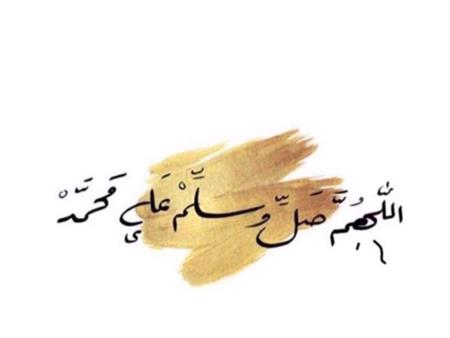 اللَّهُمَّ صَلِّ وسَلِّمْ علي مَحمَّدْ